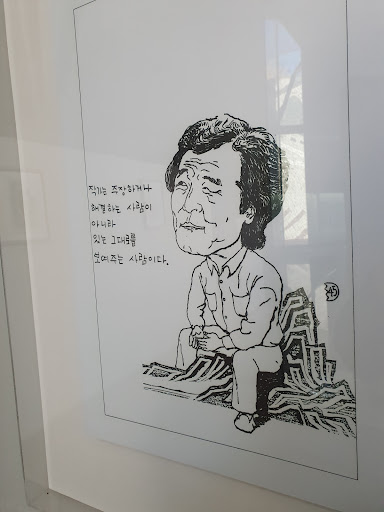 작가는 주장하거나
해결하는 사람이
아니라
있는 그대로를
보여주는 사람이다.
45